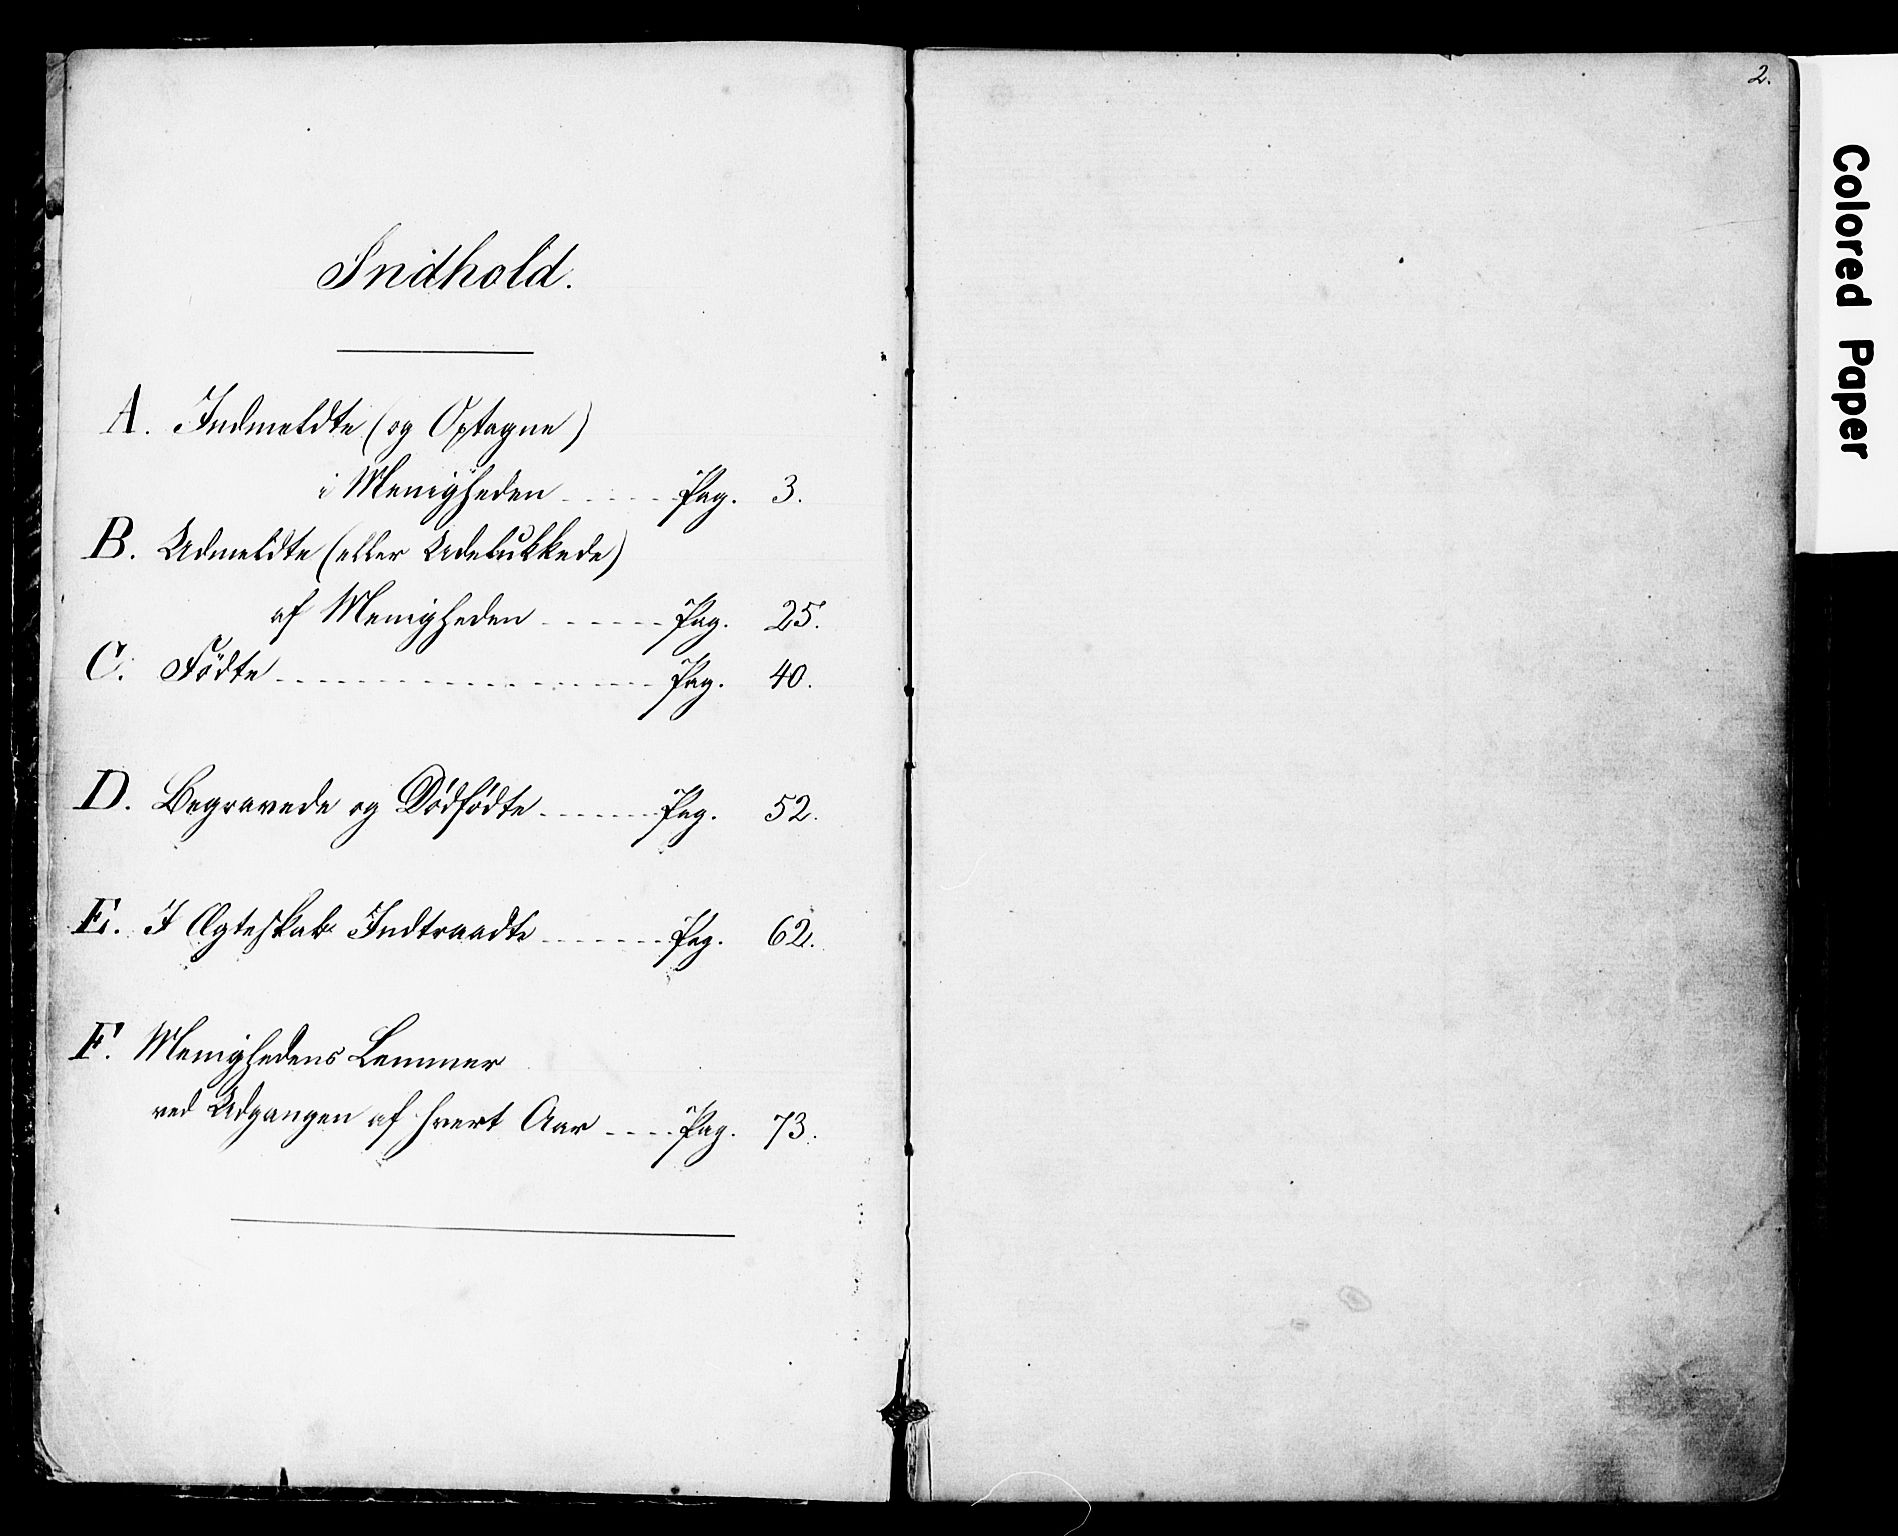 Indhold.
A. Indmeldte (og Optagne)
i Menigheden ...... Pag. 3.
B. Udmeldte (eller Udelukkede)
af Menigheden ...... Pag. 25.
C. Födte ...... Pag. 40.
D. Begravede og Dödfödte ...... Pag. 52.
E. I Ægteskab Indtraadte ...... Pag. 62.
F. Menighedens Lemmer
ved Udgangen af hvert Aar .... Pag. 73.
2.
Colored Paper